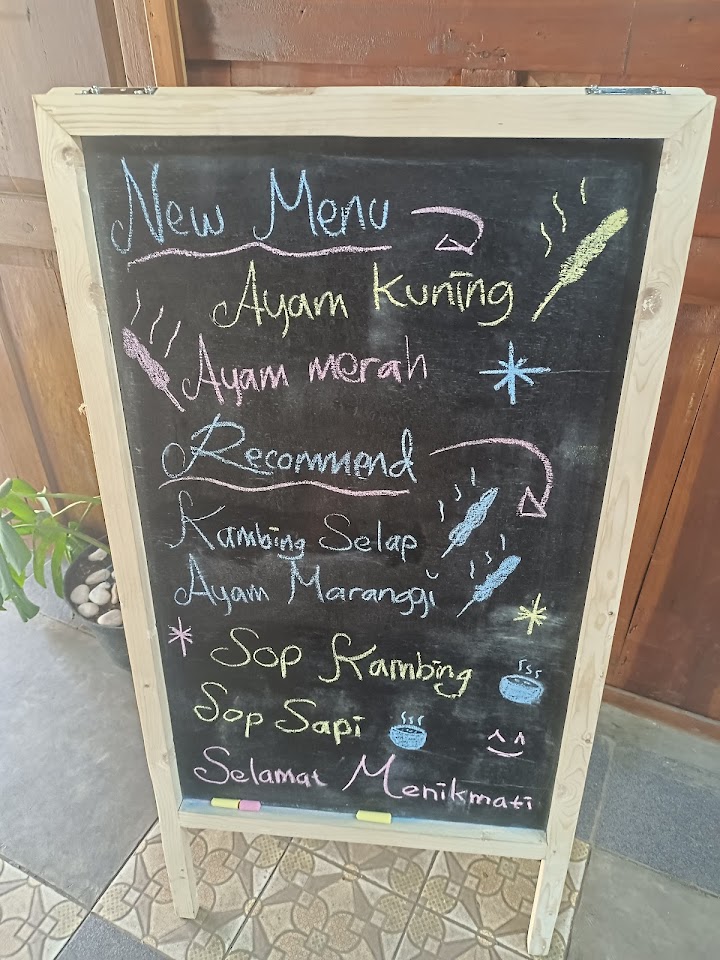 New Menu
Ayam Kuning
Ayam merah
Recommend
Kambing Selap
Ayam Maranggi
Sop Kambing
Sop Sapi
Selamat Menikmati